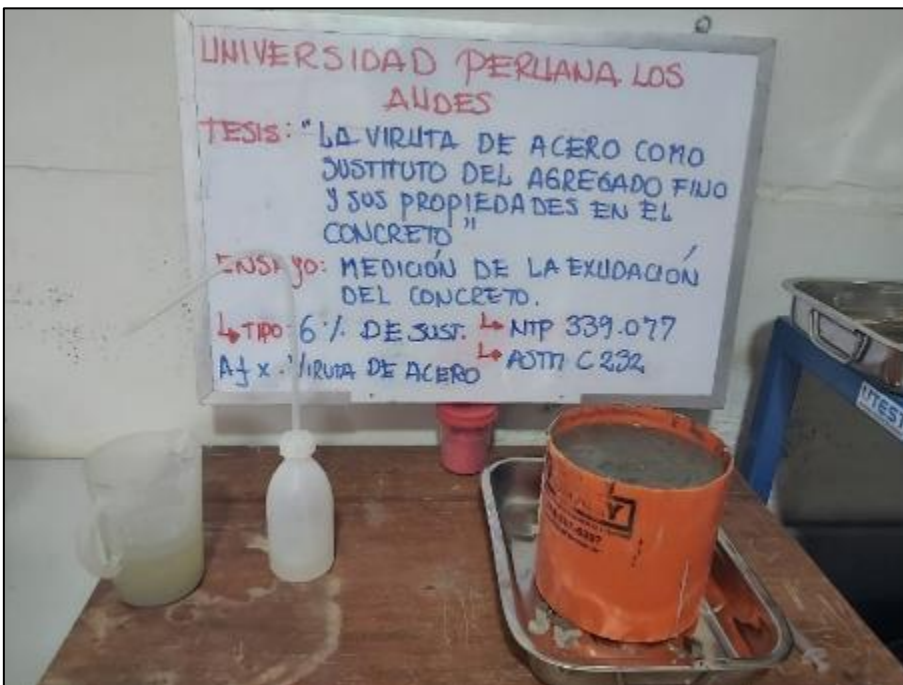 UNIVERSIDAD PERUANA LOS
ANDES
TESIS: "LA VIRUTA DE ACERO COMO
SUSTITUTO DEL AGREGADO FINO
Y SUS PROPIEDADES EN EL
CONCRETO"
ENSAYO: MEDICIÓN DE LA EXUDACIÓN
DEL CONCRETO.
↳ TIPO: 6% DE SUST. ↳ NTP 339.077
Af x VIRUTA DE ACERO ↳ ASTM C 232
UTEST
Y